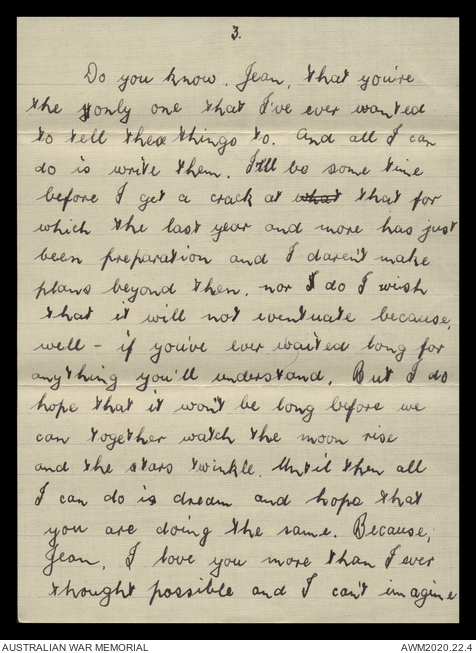 3.
Do you know, Jean, that you're
the only one that I've ever wanted
to tell these things to. And all I can
do is write them. It'll be some time
before I get a crack at what that for
which the last year and more has just
been preparation and I daren't make
plans beyond then, nor I do I wish
that it will not eventuate because,
well - if you've ever waited long for
anything you'll understand. But I do
hope that it won't be long before we
can together watch the moon rise
and the stars twinkle. Until then all
I can do is dream and hope that
you are doing the same. Because,
Jean, I love you more than I ever
thought possible and I can't imagine
AUSTRALIAN WAR MEMORIAL
AWM2020.22.4